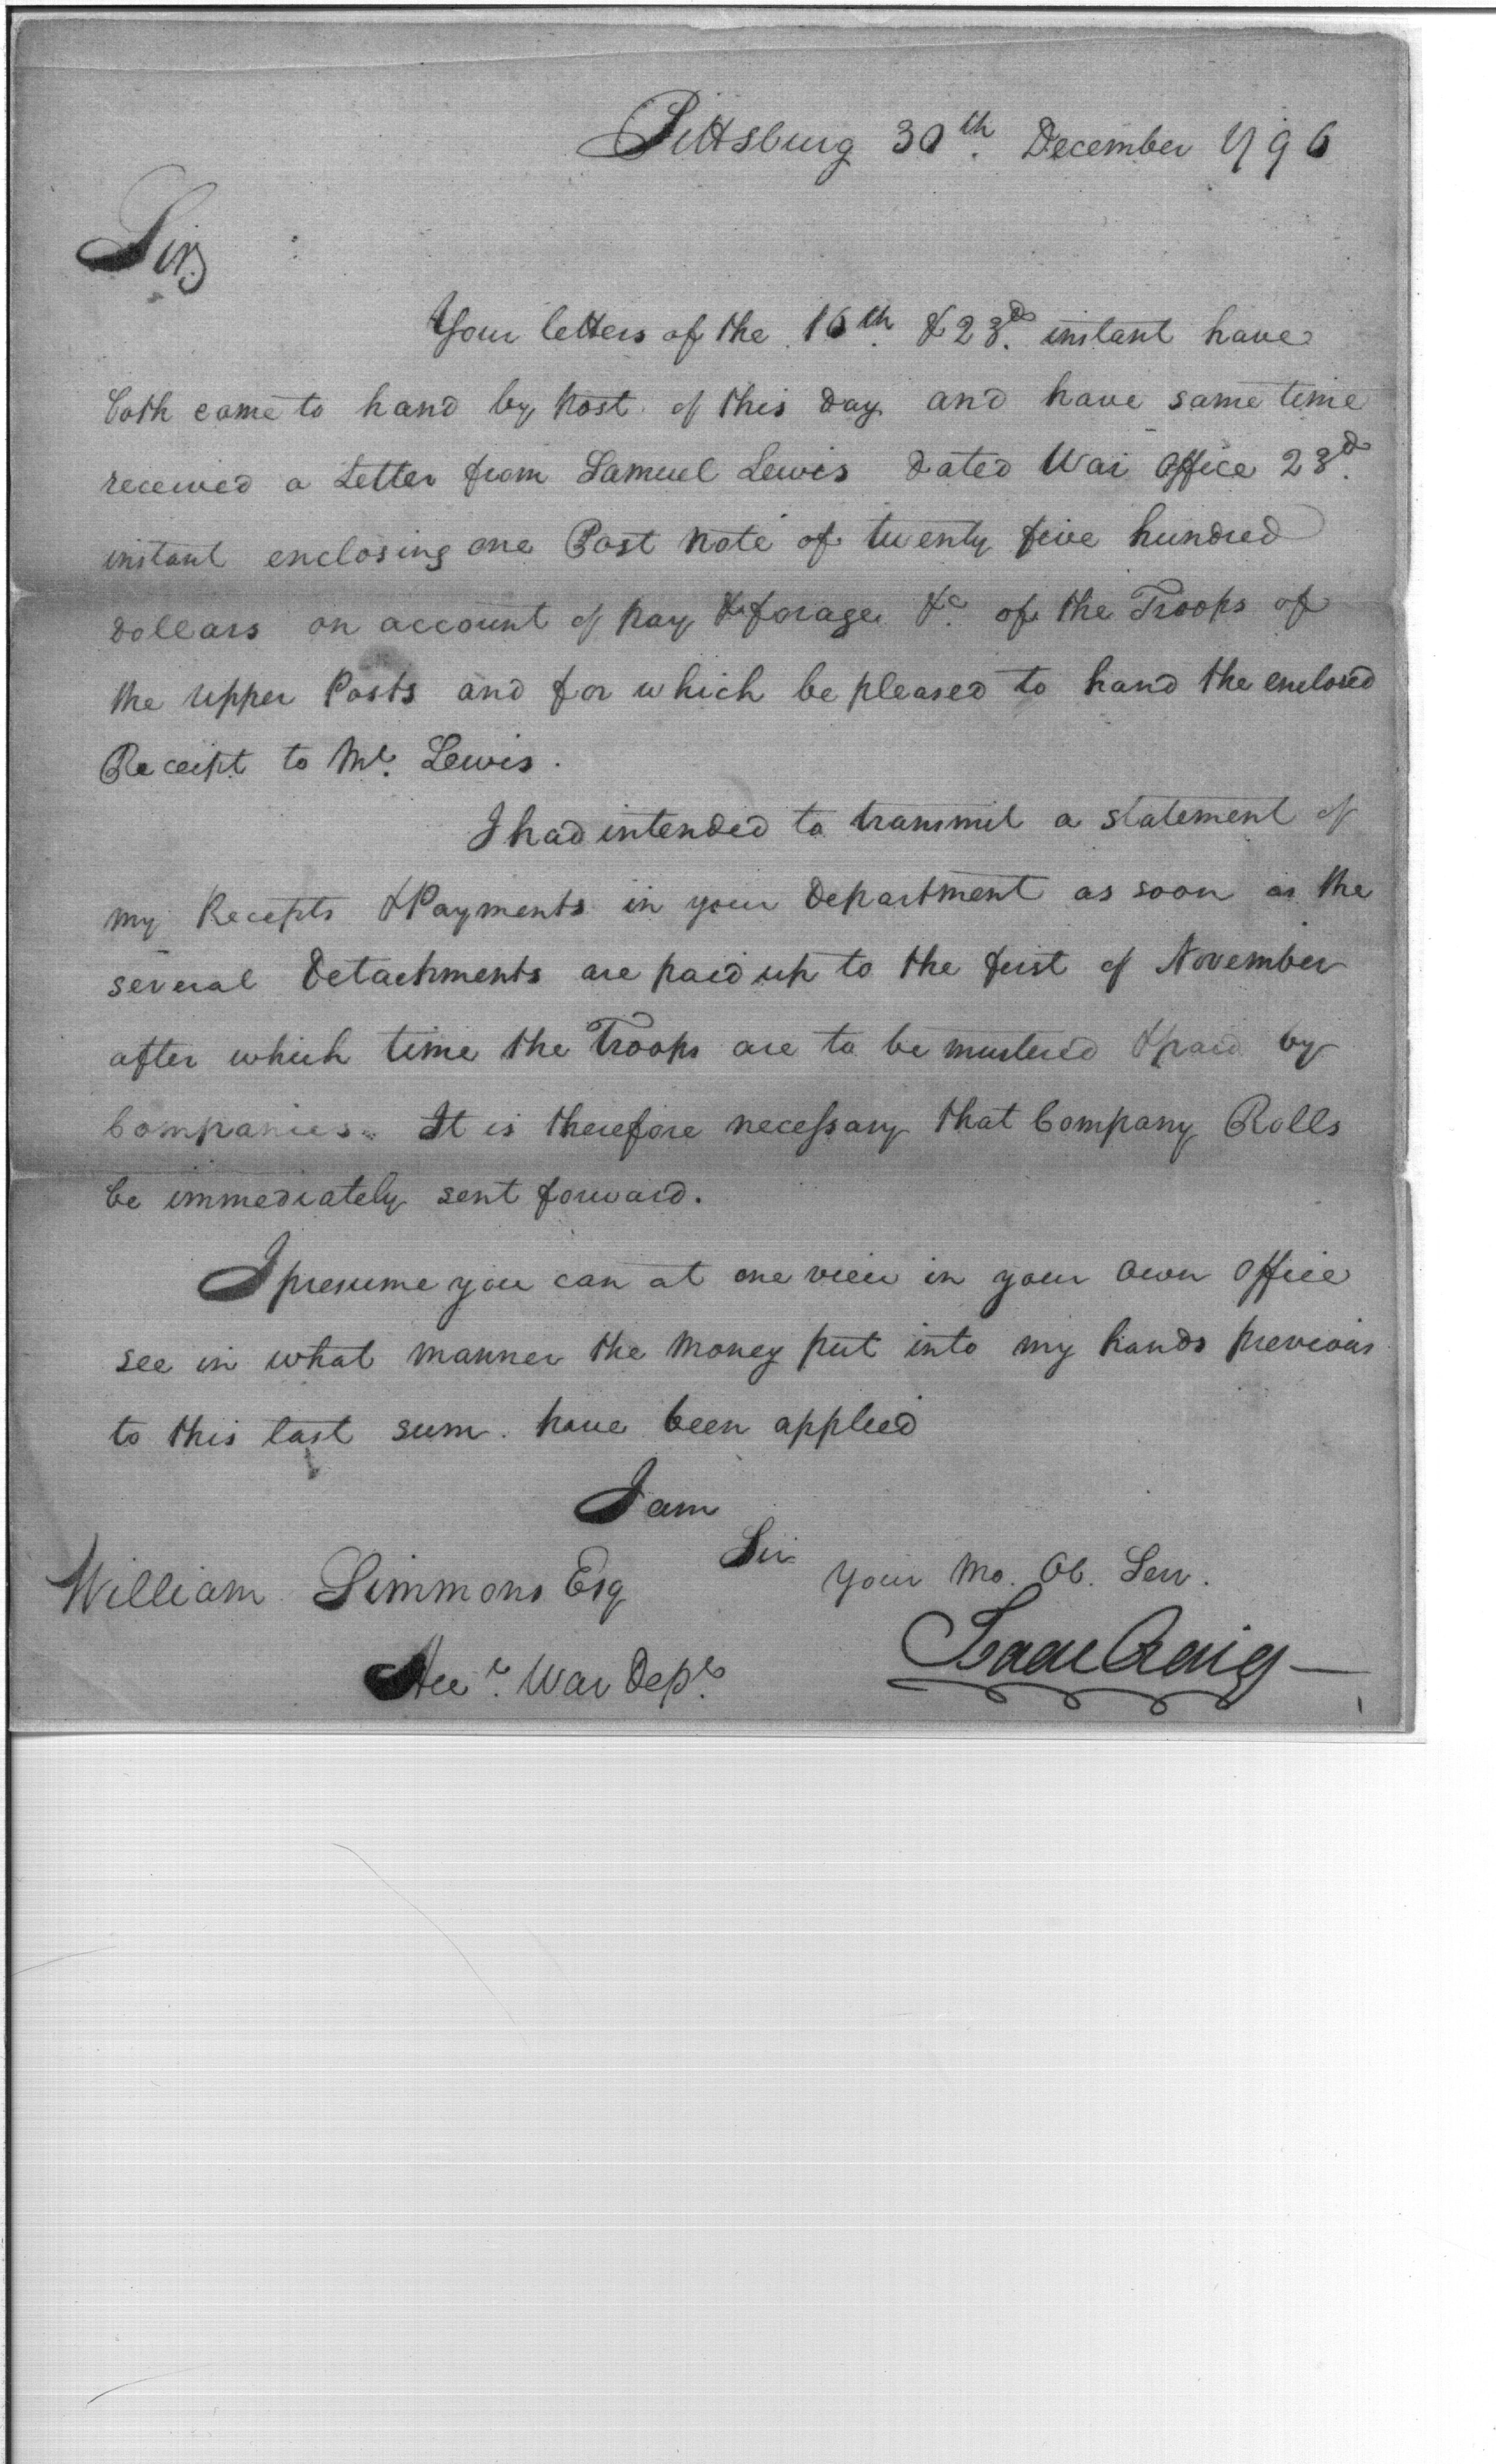 Pittsburg 30th. December 1796
Sir,
Your letters of the 16th. & 23d. instant have
both come to hand by Post of this day and have same time
received a Letter from Samuel Lewis dated War Office 23d.
instant enclosing one Post Note of twenty five hundred
Dollars on account of pay & forage &c. of the Troops of
the Upper Posts and for which be pleased to hand the enclosed
Receipt to Mr. Lewis.
I had intended to transmit a statement of
my Receipts & Payments in your Department as soon as the
several Detachments are paid up to the first of November
after which time the Troops are to be mustered & paid by
Companies. It is therefore necessary that Company Rolls
be immediately sent forward.
I presume you can at one view in your own office
see in what manner the Money put into my hands previous
to this last sum. have been applied
I am
Sir
Your Mo. Ob. Serv.
William Simmons Esq
Isaac Craig
Acct. War Dept.